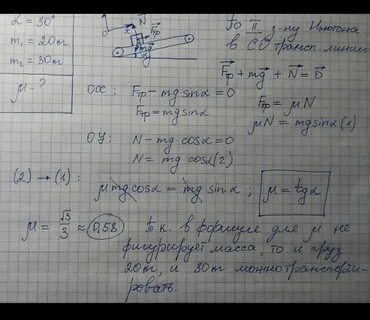 α = 30°
m₁ = 20т
m₂ = 30т
μ - ?
N
Fтр
mg
α
По II з-ну Ньютона
в СО трансп. линии
Fтр + mg + N = 0
OX: Fтр - mg sinα = 0
Fтр = mg sinα
Fтр = μN
μN = mg sinα (1)
OY: N - mg cosα = 0
N = mg cosα (2)
(2) → (1): μ mg cosα = mg sinα ; μ = tgα
μ = √3/3 ≈ 0,58
Т.к. в формуле для μ не
фигурирует масса, то и груз
20т, и 30т можно транспорти-
ровать.